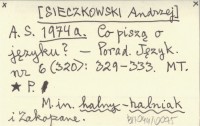 [SIECZKOWSKI Andrzej]
A.S. 1974a. Co piszą o
języku? — Porad. Język.
nr 6 (320): 329-333. MT.
★ P.
M.in. halny-halniak
i Zakopane.